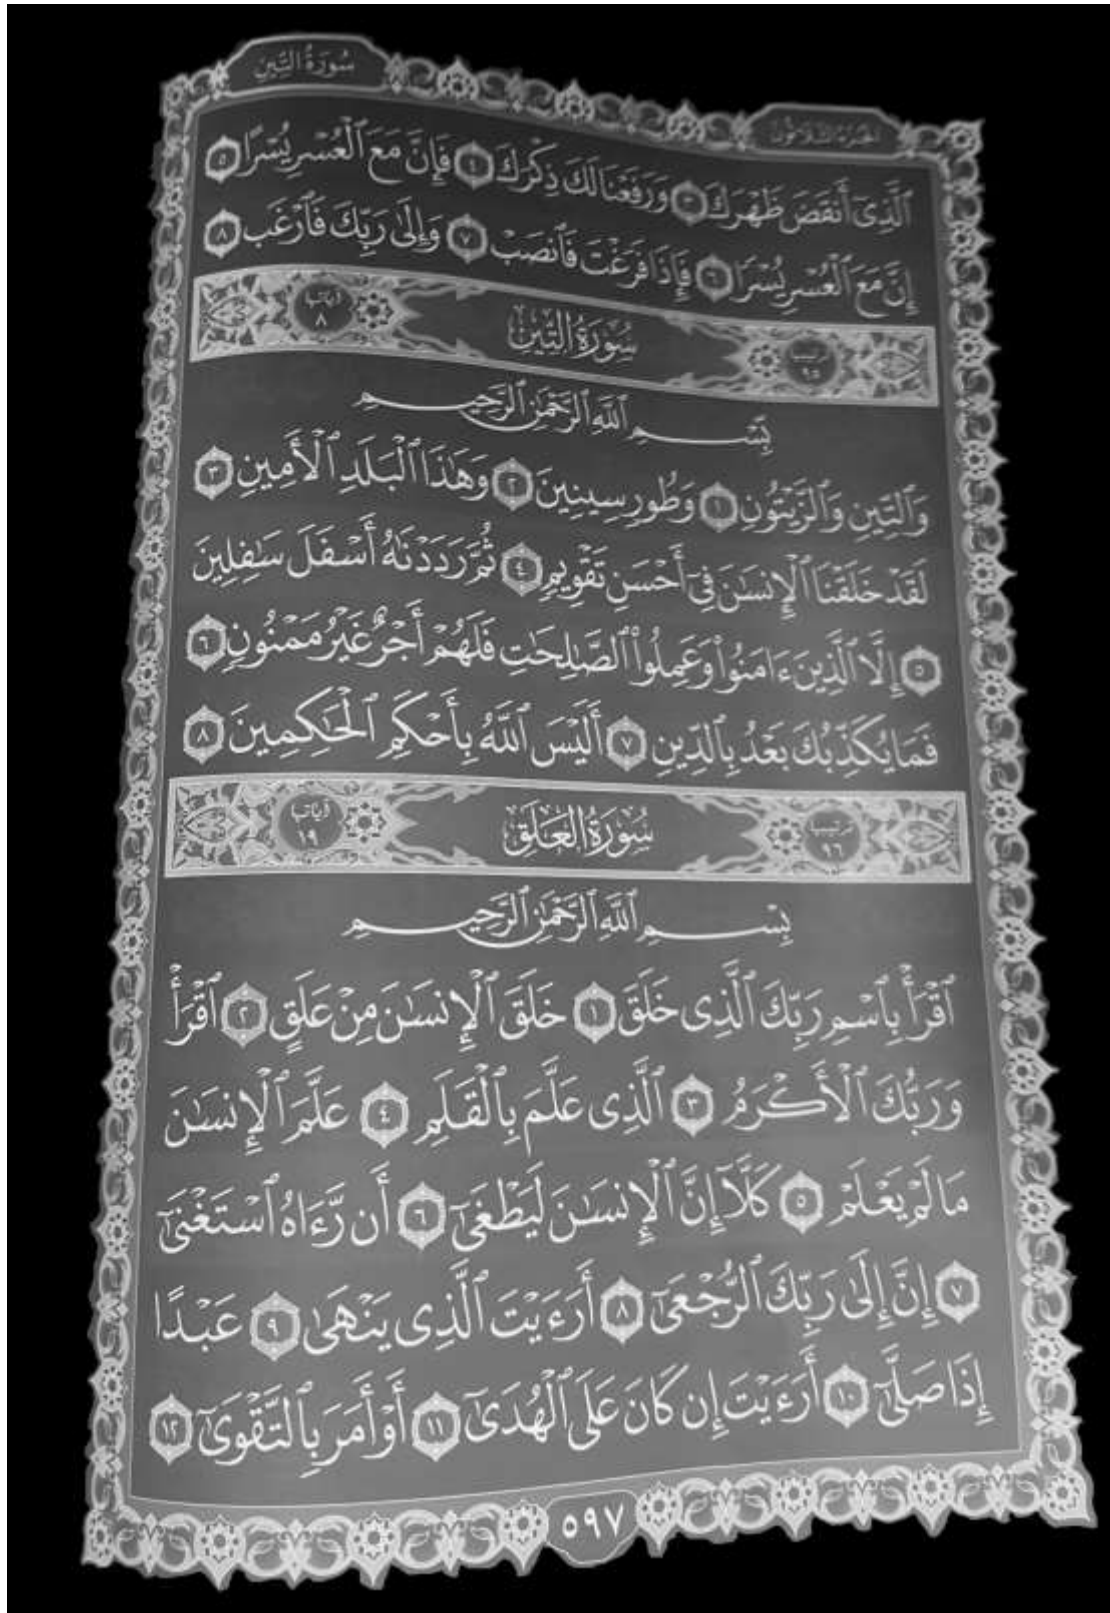 سُورَةُ التِّينِ
الجزء الثلاثون
ٱلَّذِىٓ أَنقَضَ ظَهْرَكَ ٣ وَرَفَعْنَا لَكَ ذِكْرَكَ ٤ فَإِنَّ مَعَ ٱلْعُسْرِ يُسْرًا ٥
إِنَّ مَعَ ٱلْعُسْرِ يُسْرًا ٦ فَإِذَا فَرَغْتَ فَٱنصَبْ ٧ وَإِلَىٰ رَبِّكَ فَٱرْغَب ٨
ترتيبها ٩٥ سُورَةُ التِّينِ آياتها ٨
بِسْمِ ٱللَّهِ ٱلرَّحْمَٰنِ ٱلرَّحِيمِ
وَٱلتِّينِ وَٱلزَّيْتُونِ ١ وَطُورِ سِينِينَ ٢ وَهَٰذَا ٱلْبَلَدِ ٱلْأَمِينِ ٣
لَقَدْ خَلَقْنَا ٱلْإِنسَٰنَ فِىٓ أَحْسَنِ تَقْوِيمٍ ٤ ثُمَّ رَدَدْنَٰهُ أَسْفَلَ سَٰفِلِينَ
٥ إِلَّا ٱلَّذِينَ ءَامَنُوا۟ وَعَمِلُوا۟ ٱلصَّٰلِحَٰتِ فَلَهُمْ أَجْرٌ غَيْرُ مَمْنُونٍ ٦
فَمَا يُكَذِّبُكَ بَعْدُ بِٱلدِّينِ ٧ أَلَيْسَ ٱللَّهُ بِأَحْكَمِ ٱلْحَٰكِمِينَ ٨
ترتيبها ٩٦ سُورَةُ العَلَقِ آياتها ١٩
بِسْمِ ٱللَّهِ ٱلرَّحْمَٰنِ ٱلرَّحِيمِ
ٱقْرَأْ بِٱسْمِ رَبِّكَ ٱلَّذِى خَلَقَ ١ خَلَقَ ٱلْإِنسَٰنَ مِنْ عَلَقٍ ٢ ٱقْرَأْ
وَرَبُّكَ ٱلْأَكْرَمُ ٣ ٱلَّذِى عَلَّمَ بِٱلْقَلَمِ ٤ عَلَّمَ ٱلْإِنسَٰنَ
مَا لَمْ يَعْلَمْ ٥ كَلَّآ إِنَّ ٱلْإِنسَٰنَ لَيَطْغَىٰٓ ٦ أَن رَّءَاهُ ٱسْتَغْنَىٰٓ
٧ إِنَّ إِلَىٰ رَبِّكَ ٱلرُّجْعَىٰٓ ٨ أَرَءَيْتَ ٱلَّذِى يَنْهَىٰ ٩ عَبْدًا
إِذَا صَلَّىٰٓ ١٠ أَرَءَيْتَ إِن كَانَ عَلَى ٱلْهُدَىٰٓ ١١ أَوْ أَمَرَ بِٱلتَّقْوَىٰٓ ١٢
٥٩٧